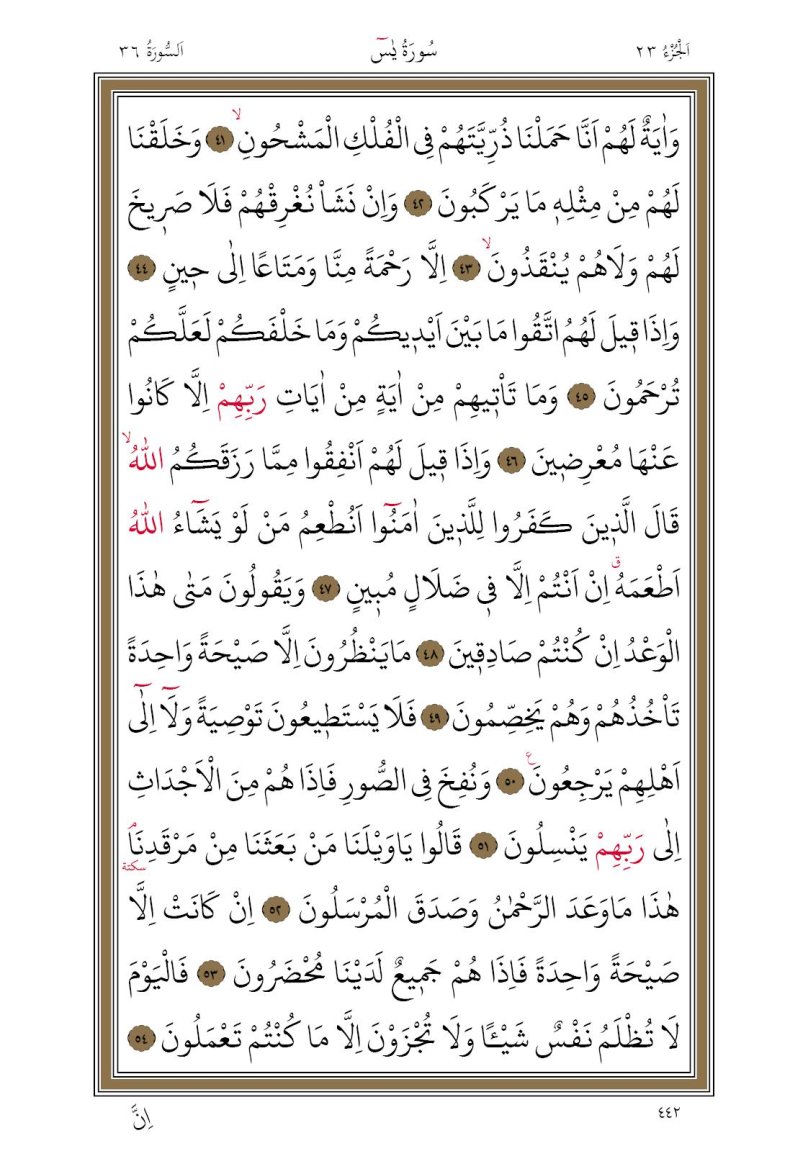 اَلْجُزْءُ ٢٣ سُورَةُ يٰسٓ اَلسُّورَةُ ٣٦
وَاٰيَةٌ لَهُمْ اَنَّا حَمَلْنَا ذُرِّيَّتَهُمْ فِى الْفُلْكِ الْمَشْحُونِۙ ٤١ وَخَلَقْنَا
لَهُمْ مِنْ مِثْلِه۪ مَا يَرْكَبُونَ ٤٢ وَاِنْ نَشَأْ نُغْرِقْهُمْ فَلَا صَر۪يخَ
لَهُمْ وَلَاهُمْ يُنْقَذُونَۙ ٤٣ اِلَّا رَحْمَةً مِنَّا وَمَتَاعًا اِلٰى ح۪ينٍ ٤٤
وَاِذَا ق۪يلَ لَهُمُ اتَّقُوا مَا بَيْنَ اَيْد۪يكُمْ وَمَا خَلْفَكُمْ لَعَلَّكُمْ
تُرْحَمُونَ ٤٥ وَمَا تَأْت۪يهِمْ مِنْ اٰيَةٍ مِنْ اٰيَاتِ رَبِّهِمْ اِلَّا كَانُوا
عَنْهَا مُعْرِض۪ينَ ٤٦ وَاِذَا ق۪يلَ لَهُمْ اَنْفِقُوا مِمَّا رَزَقَكُمُ اللّٰهُۙ
قَالَ الَّذ۪ينَ كَفَرُوا لِلَّذ۪ينَ اٰمَنُٓوا اَنُطْعِمُ مَنْ لَوْ يَشَٓاءُ اللّٰهُ
اَطْعَمَهُۗ اِنْ اَنْتُمْ اِلَّا ف۪ى ضَلَالٍ مُب۪ينٍ ٤٧ وَيَقُولُونَ مَتٰى هٰذَا
الْوَعْدُ اِنْ كُنْتُمْ صَادِق۪ينَ ٤٨ مَايَنْظُرُونَ اِلَّا صَيْحَةً وَاحِدَةً
تَأْخُذُهُمْ وَهُمْ يَخِصِّمُونَ ٤٩ فَلَا يَسْتَط۪يعُونَ تَوْصِيَةً وَلَٓا اِلٰٓى
اَهْلِهِمْ يَرْجِعُونَ۟ ٥٠ وَنُفِخَ فِى الصُّورِ فَاِذَا هُمْ مِنَ الْاَجْدَاثِ
اِلٰى رَبِّهِمْ يَنْسِلُونَ ٥١ قَالُوا يَاوَيْلَنَا مَنْ بَعَثَنَا مِنْ مَرْقَدِنَاۢ
سكتة
هٰذَا مَاوَعَدَ الرَّحْمٰنُ وَصَدَقَ الْمُرْسَلُونَ ٥٢ اِنْ كَانَتْ اِلَّا
صَيْحَةً وَاحِدَةً فَاِذَا هُمْ جَم۪يعٌ لَدَيْنَا مُحْضَرُونَ ٥٣ فَالْيَوْمَ
لَا تُظْلَمُ نَفْسٌ شَيْـًٔا وَلَا تُجْزَوْنَ اِلَّا مَا كُنْتُمْ تَعْمَلُونَ ٥٤
٤٤٢ اِنَّ